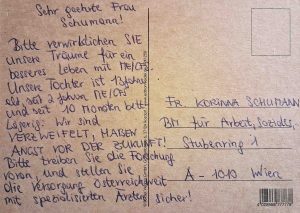 Sehr geehrte Frau
Schumann!
Bitte verwirklichen SIE
unsere Träume für ein
besseres Leben mit ME/CFS
Unsere Tochter ist 13 Jahre
alt, seit 2 Jahren ME/CFS
und seit 10 Monaten bett-
lägerig: Wir sind
VERZWEIFELT, HABEN
ANGST VOR DER ZUKUNFT!
Bitte treiben Sie die Forschung
voran, und stellen Sie
die Versorgung Österreichweit
mit spezialisierten Ärzten sicher!
FR. KORINNA SCHUMANN
BM für Arbeit, Soziales,
Stubenring 1
A - 1010 Wien